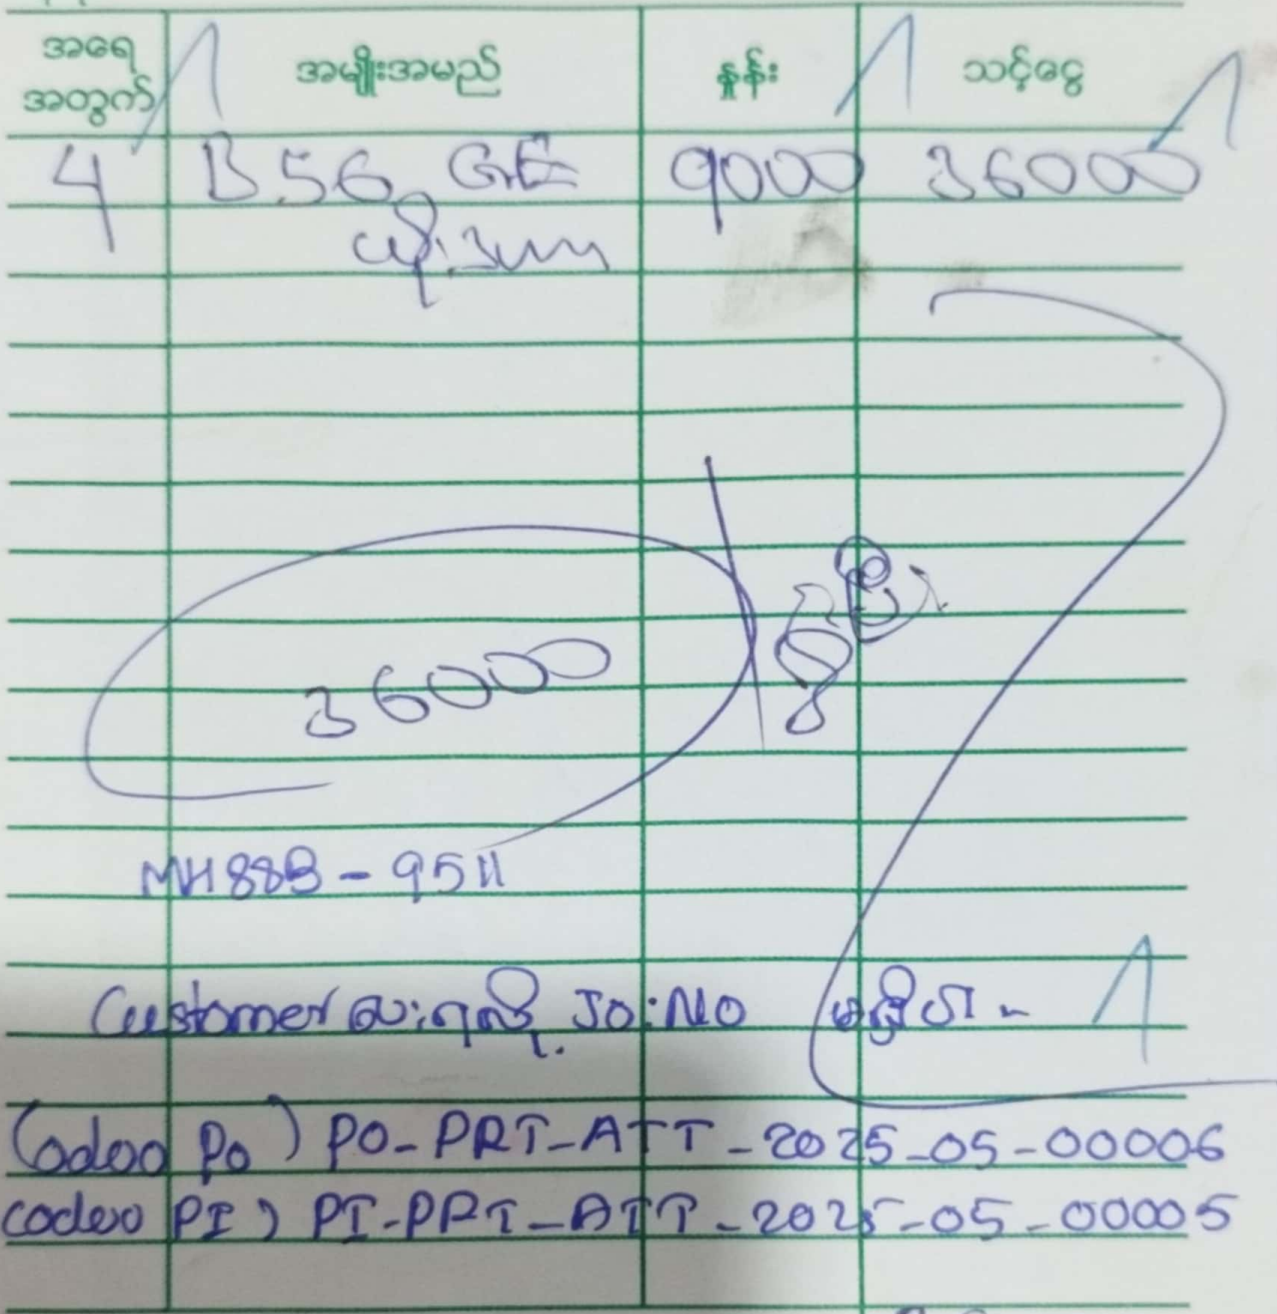 အရေအတွက် အမျိုးအမည် နှုန်း သင့်ငွေ
4 B56 GE 9000 36000
36000
MH88B-9511
Customer လဲရလို့ Jo:No မရှိပါ
(odoo PO) PO-PRT-ATT-2025-05-00006
(odoo PI) PI-PRT-ATT-2025-05-00005